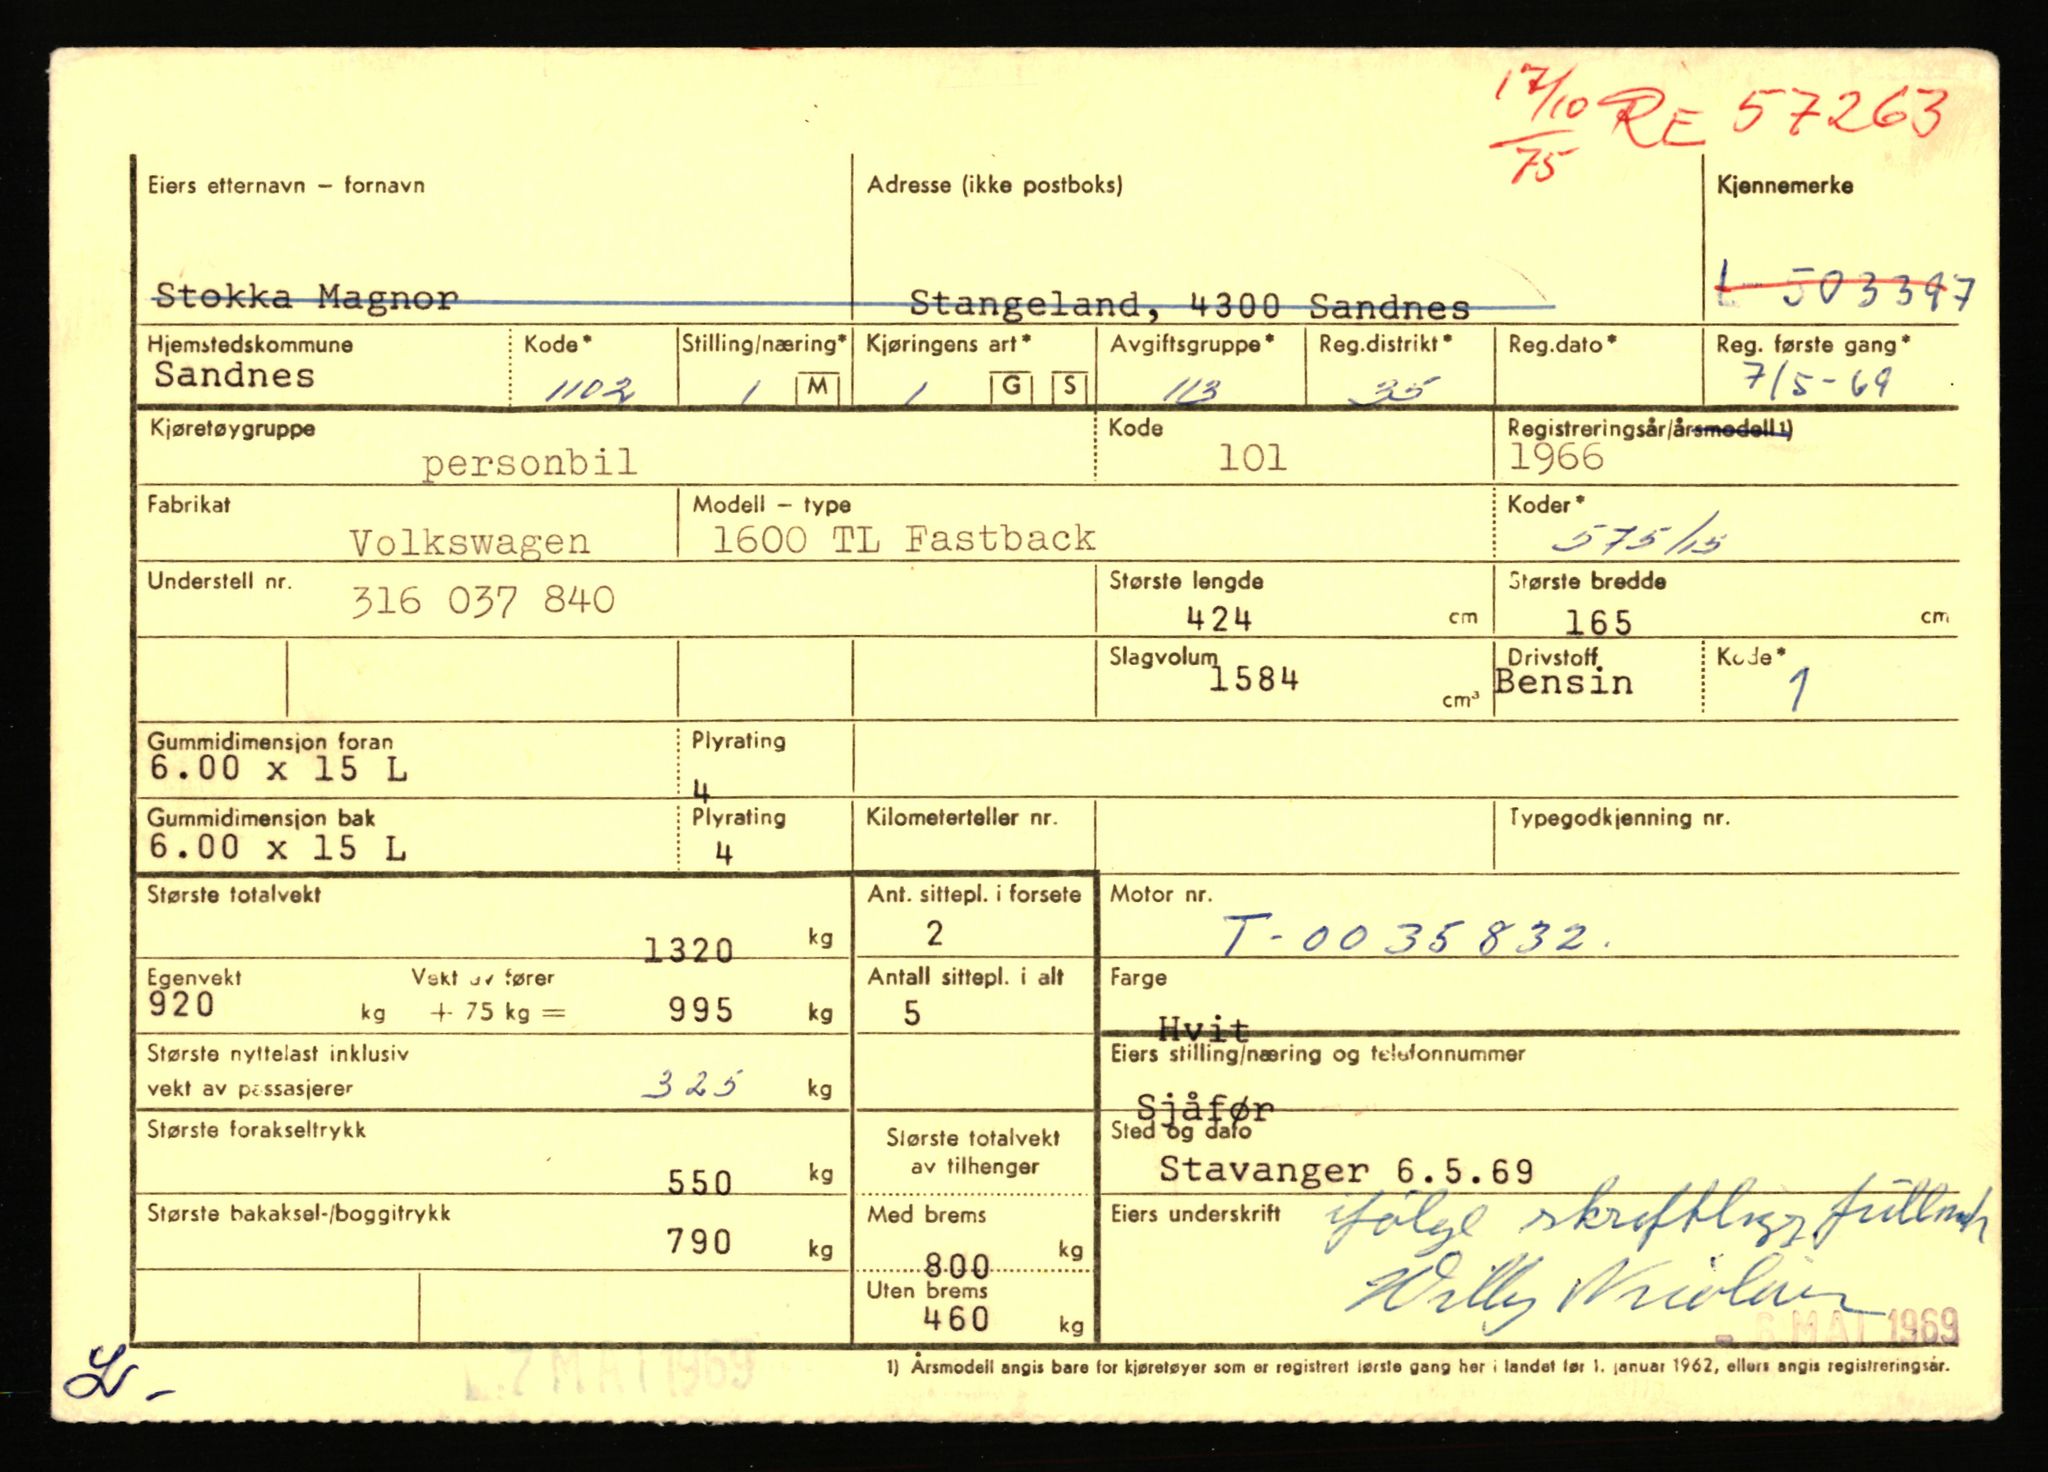 17/10 RE 57263
75
Eiers etternavn – fornavn Adresse (ikke postboks) Kjennemerke
Stokka Magnor Stangeland, 4300 Sandnes L 503397
Hjemstedskommune Kode* Stilling/næring* Kjøringens art* Avgiftsgruppe* Reg.distrikt* Reg.dato* Reg. første gang*
Sandnes 1102 1 M 1 G S 113 35 7/5-69
Kjøretøygruppe Kode Registreringsår/årsmodell 1)
personbil 101 1966
Fabrikat Modell – type Koder*
Volkswagen 1600 TL Fastback 575/15
Understell nr. Største lengde Største bredde
316 037 840 424 cm 165 cm
Slagvolum Drivstoff Kode*
1584 cm³ Bensin 1
Gummidimensjon foran Plyrating
6.00 x 15 L 4
Gummidimensjon bak Plyrating Kilometerteller nr. Typegodkjenning nr.
6.00 x 15 L 4
Største totalvekt Ant. sittepl. i forsete Motor nr.
1320 kg 2 T-0035832.
Egenvekt Vekt av fører Antall sittepl. i alt Farge
920 kg + 75 kg = 995 kg 5 Hvit
Største nyttelast inklusiv Eiers stilling/næring og telefonnummer
vekt av passasjerer 325 kg Sjåfør
Største forakseltrykk Største totalvekt Sted og dato
550 kg av tilhenger Stavanger 6.5.69
Største bakaksel-/boggitrykk Med brems Eiers underskrift ifølge skriftlig fullmakt
790 kg 800 kg Willy
Uten brems
460 kg - 6 MAI 1969
1) Årsmodell angis bare for kjøretøyer som er registrert første gang her i landet før 1. januar 1962, ellers angis registreringsår.
MAI 1969